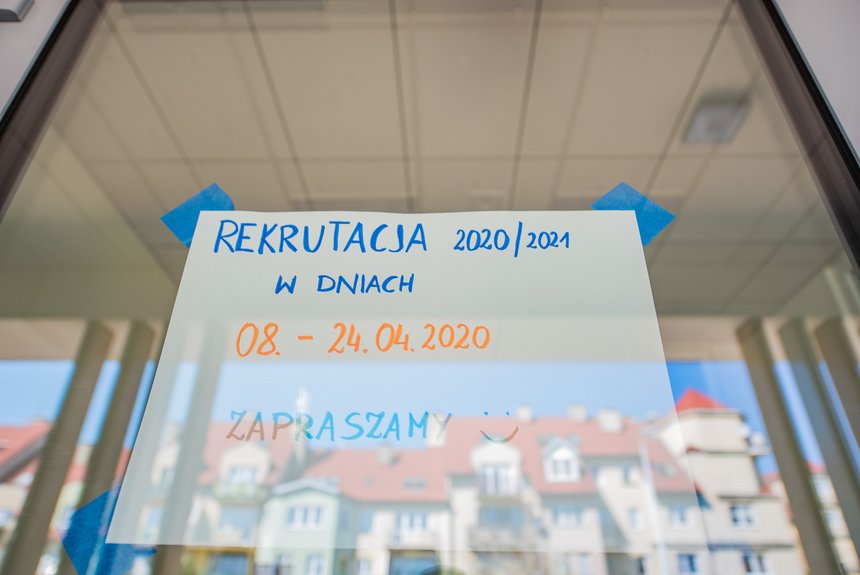 REKRUTACJA 2020/2021
W DNIACH
08. - 24.04.2020
ZAPRASZAMY